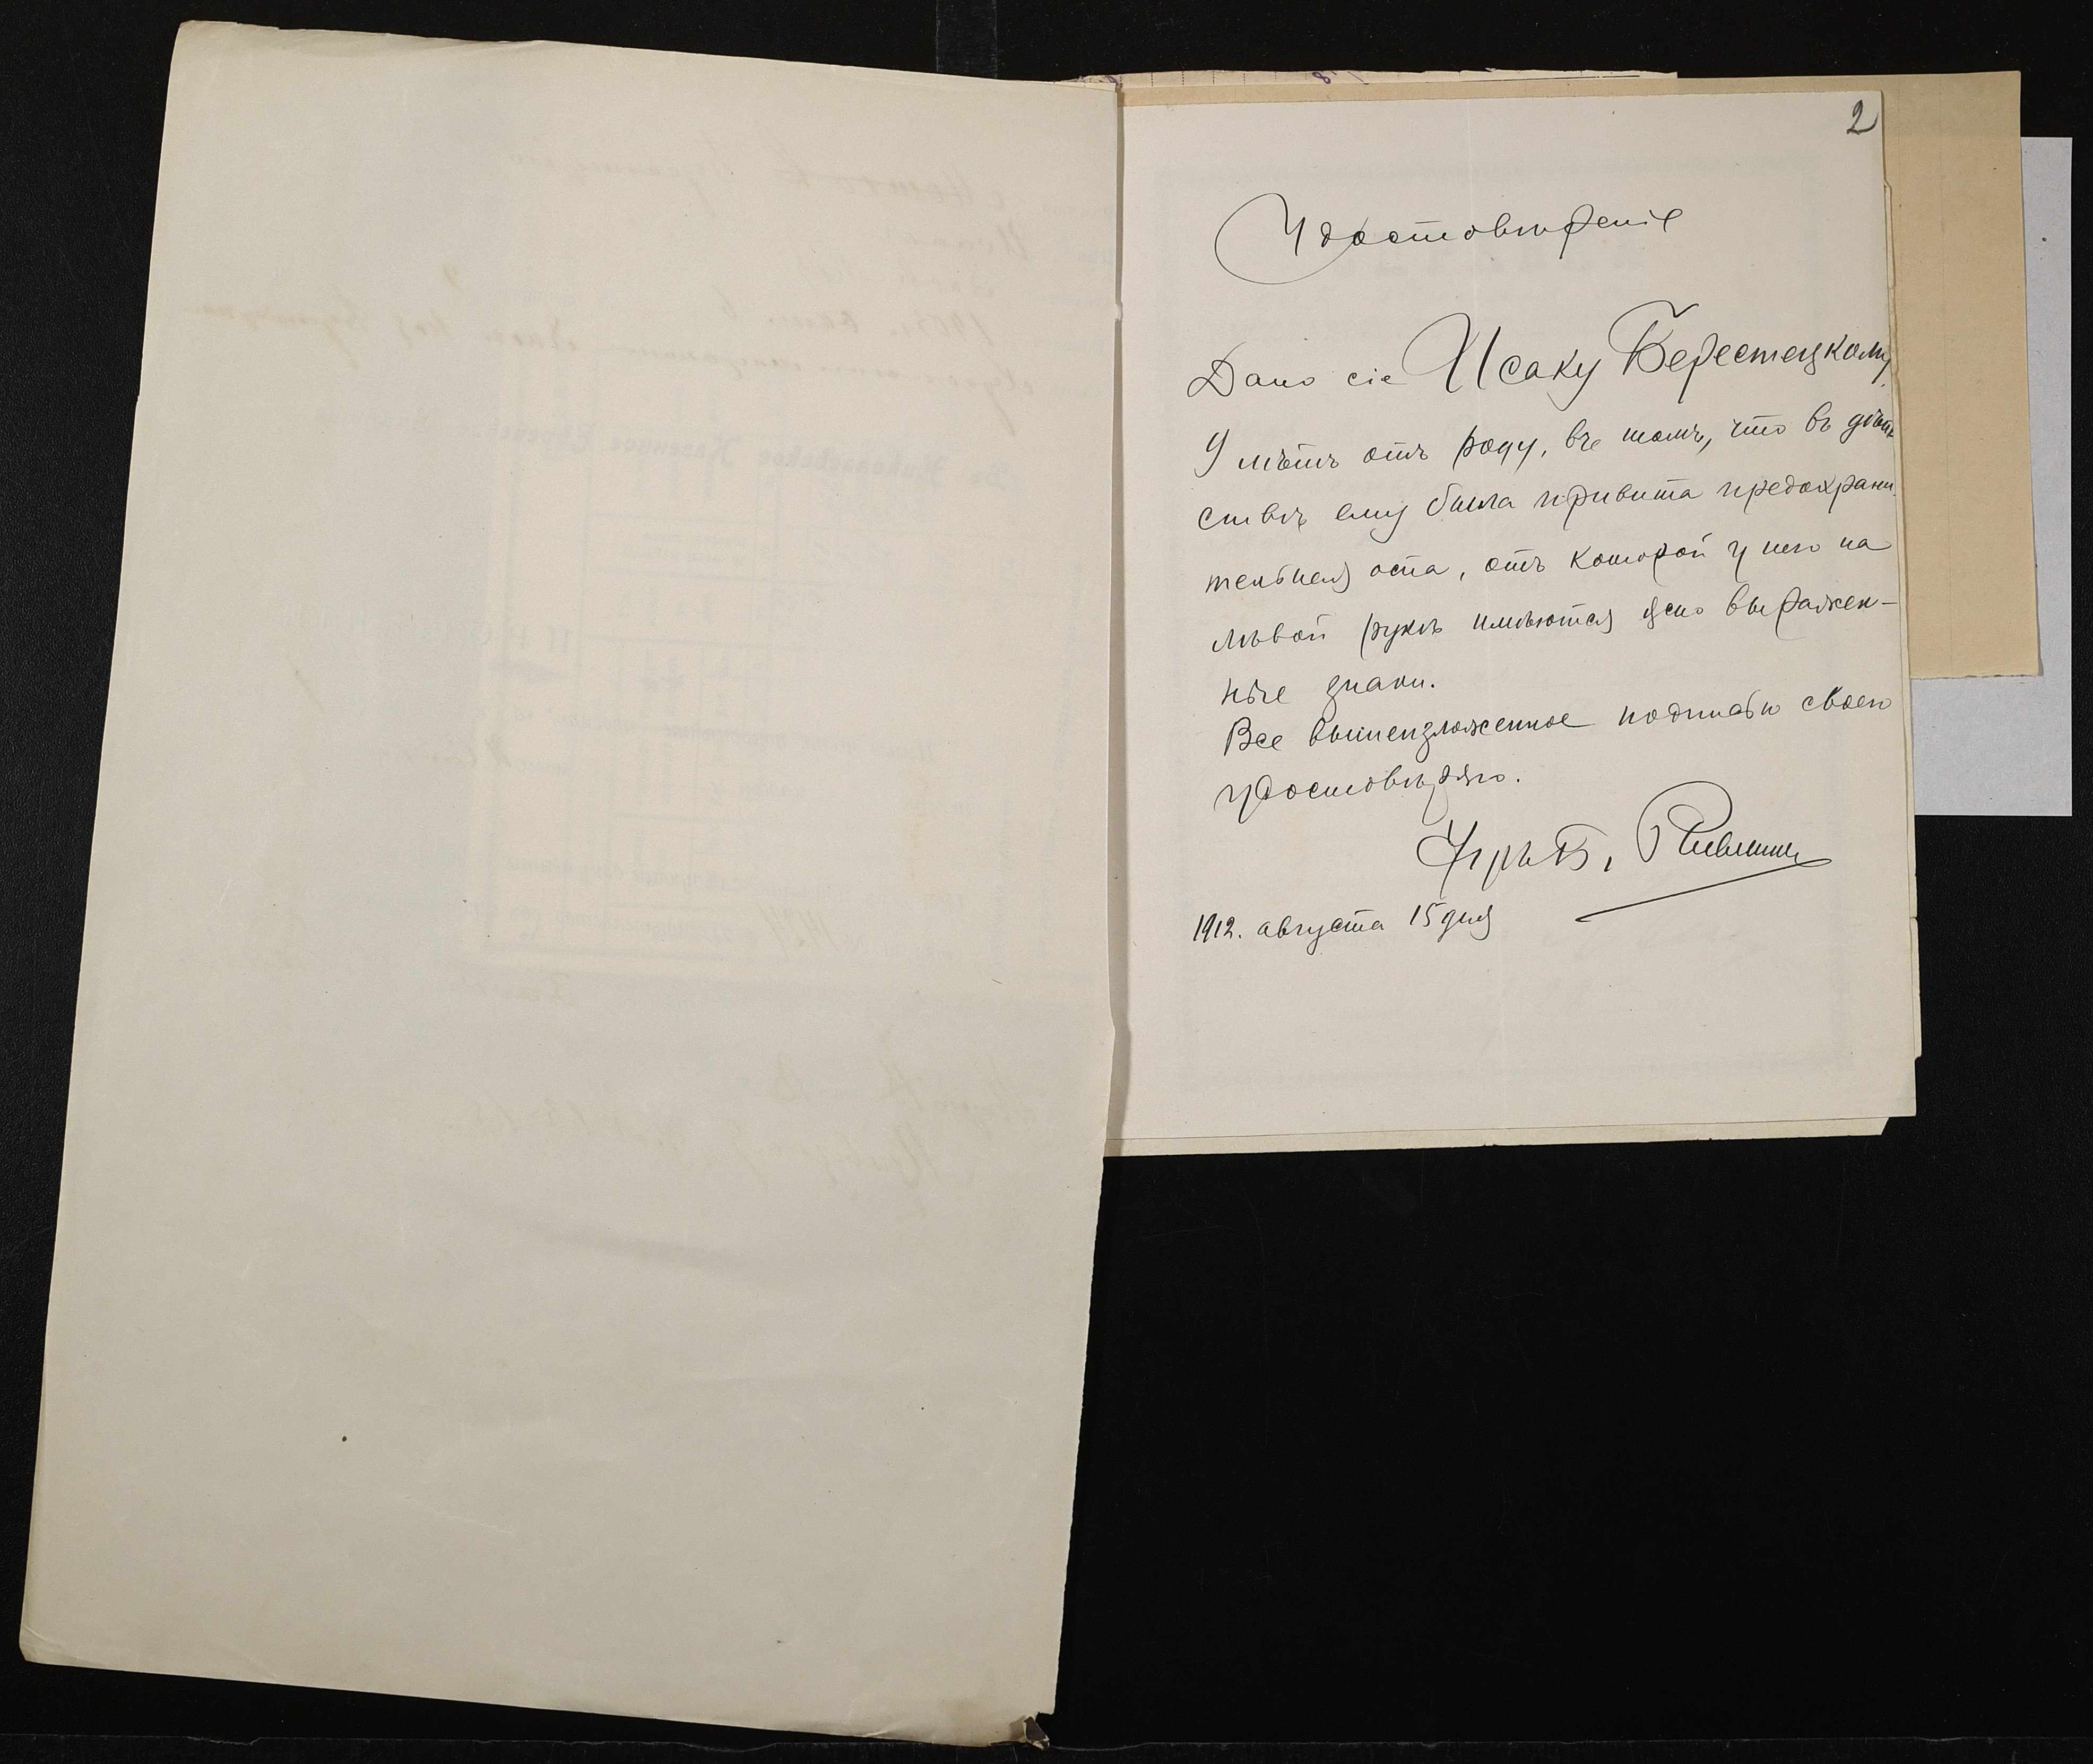 2
Удостовѣреніе
Дано сіе Исаку Берестецкому,
9 лѣтъ отъ роду, въ томъ, что въ дѣт
ствѣ ему была привита предохрани
тельная оспа, отъ которой у него на
лѣвой рукѣ имѣются ясно выражен-
ные знаки.
Все вышеизложенное подписью своею
удостовѣряю.
1912. августа 15 дня